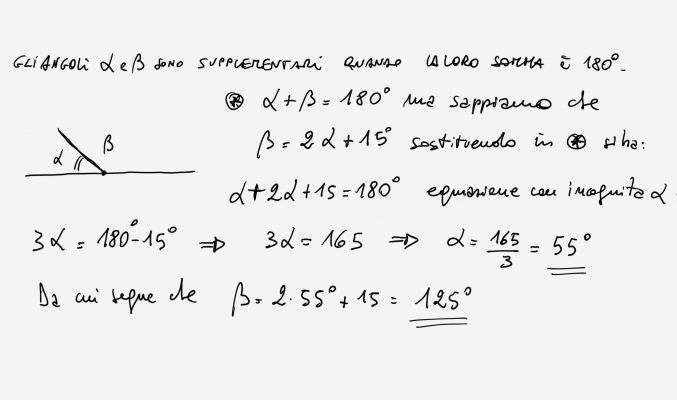 GLI ANGOLI α e β SONO SUPPLEMENTARI QUANDO LA LORO SOMMA È 180°.
⊛ α + β = 180° ma sappiamo che
α β
β = 2α + 15° sostituendo in ⊛ si ha:
α + 2α + 15 = 180° equazione con incognita α.
3α = 180° - 15° ⇒ 3α = 165 ⇒ α = 165/3 = 55°
Da cui segue che β = 2·55° + 15 = 125°